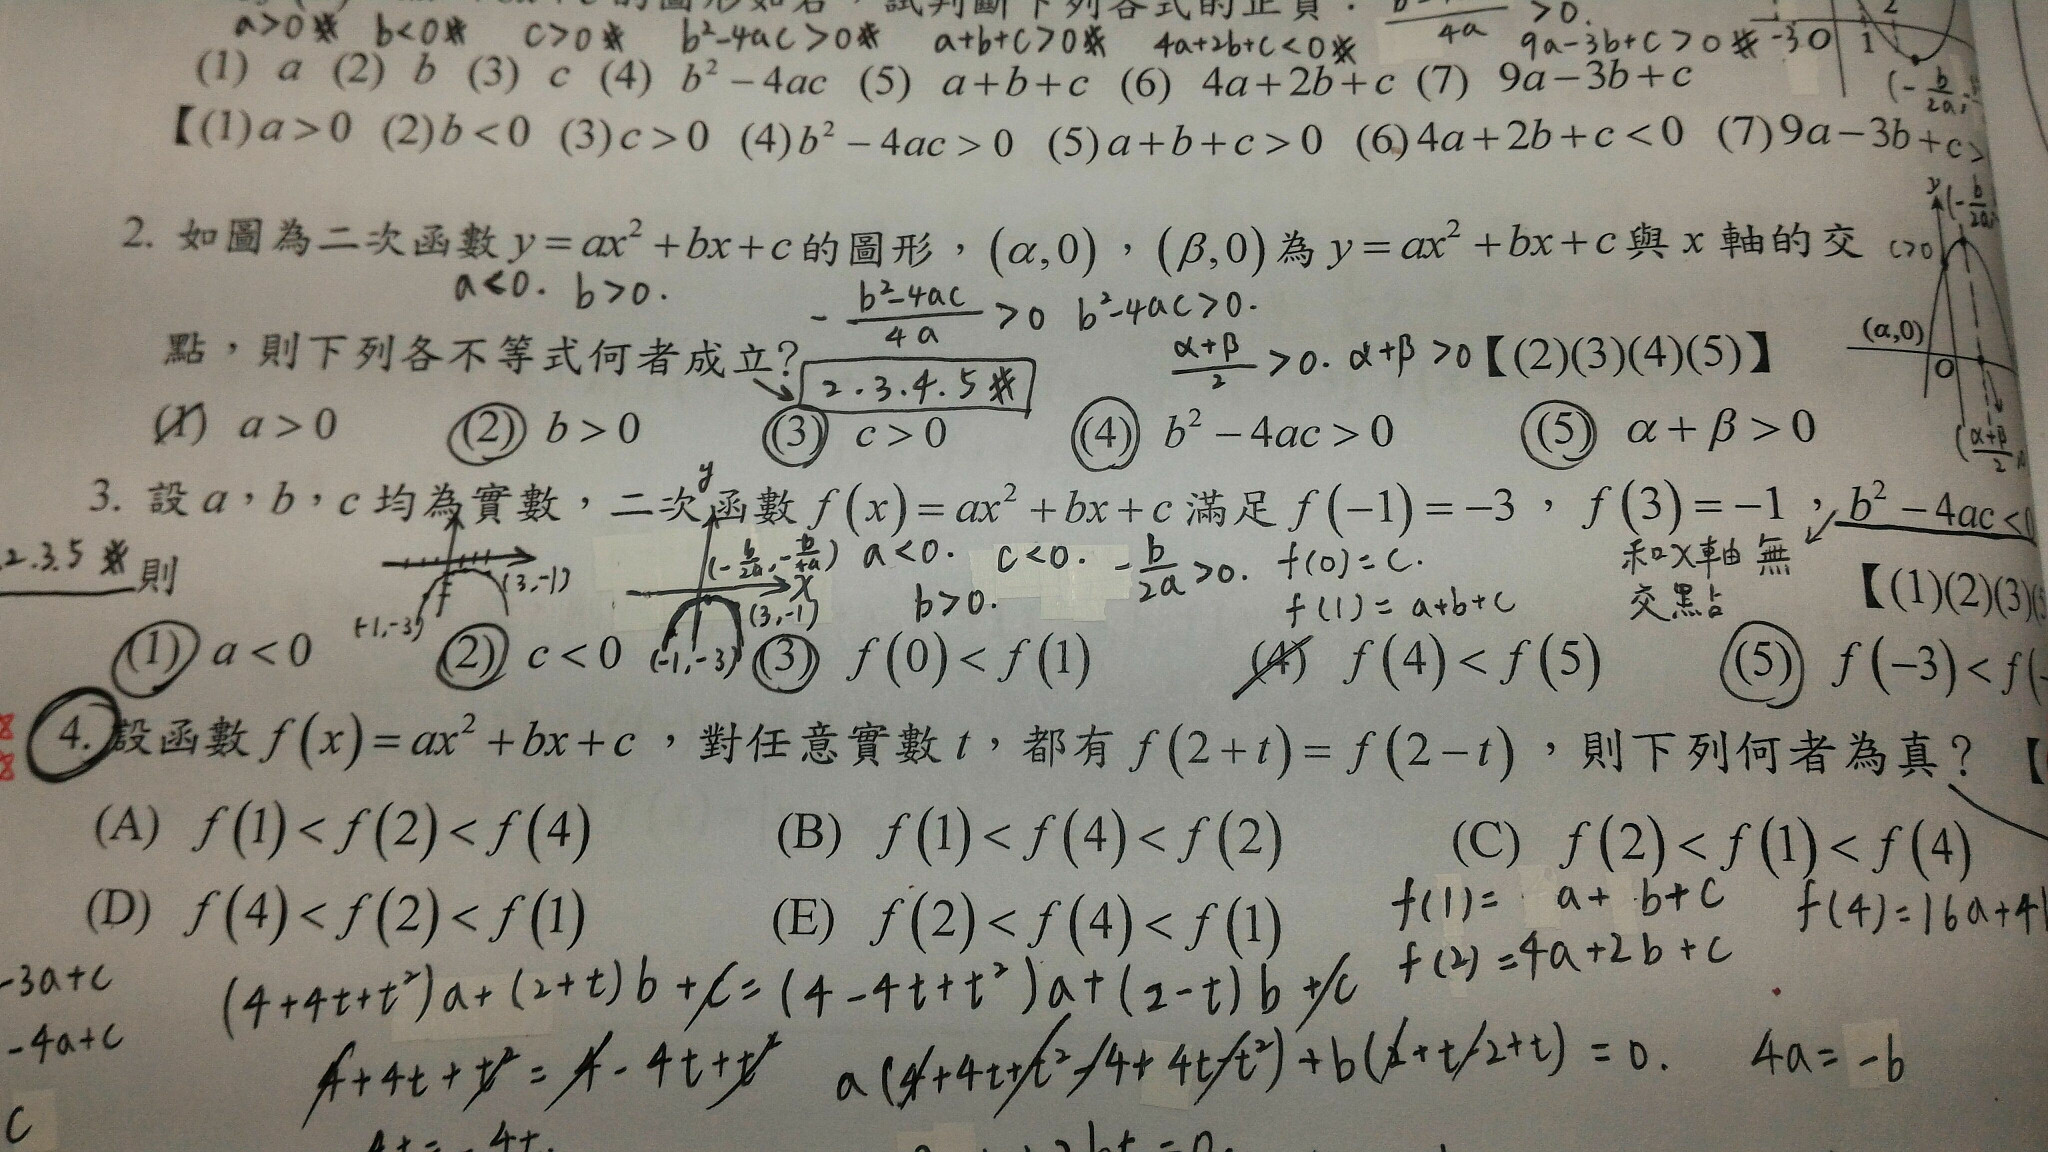 的圖形如右,試判斷下列各式的正負:
a>0※ b<0※ c>0※ b²-4ac>0※ a+b+c>0※ 4a+2b+c<0※ 4a >0. 9a-3b+c>0※ -3 0 1 2
(1) a (2) b (3) c (4) b²-4ac (5) a+b+c (6) 4a+2b+c (7) 9a-3b+c
(-b/2a,
【(1)a>0 (2)b<0 (3)c>0 (4)b²-4ac>0 (5)a+b+c>0 (6)4a+2b+c<0 (7)9a-3b+c>
2. 如圖為二次函數 y=ax²+bx+c 的圖形,(α,0),(β,0)為 y=ax²+bx+c 與 x 軸的交
y (-b/2a, c>0
a<0. b>0. -(b²-4ac)/4a >0 b²-4ac>0.
點,則下列各不等式何者成立? (α+β)/2 >0. α+β>0【(2)(3)(4)(5)】
(α,0) 0
2.3.4.5※
(1) a>0 (2) b>0 (3) c>0 (4) b²-4ac>0 (5) α+β>0
((α+β)/2,
3. 設 a,b,c 均為實數,二次函數 f(x)=ax²+bx+c 滿足 f(-1)=-3,f(3)=-1,b²-4ac<0
y
2.3.5※ 則 (3,-1) x (3,-1) a<0. c<0. -b/2a >0. f(0)=c. 和x軸無
(-1,-3) b>0. f(1)=a+b+c 交點 【(1)(2)(3)(5
(1) a<0 (2) c<0 (-1,-3) (3) f(0)<f(1) (4) f(4)<f(5) (5) f(-3)<f(-
4. 設函數 f(x)=ax²+bx+c,對任意實數 t,都有 f(2+t)=f(2-t),則下列何者為真?【
(A) f(1)<f(2)<f(4) (B) f(1)<f(4)<f(2) (C) f(2)<f(1)<f(4)
f(1)= a+b+c f(4)=16a+4
(D) f(4)<f(2)<f(1) (E) f(2)<f(4)<f(1)
f(2)=4a+2b+c
-3a+c (4+4t+t²)a+(2+t)b+c=(4-4t+t²)a+(2-t)b+c
-4a+c 4+4t+t²=4-4t+t² a(4+4t+t²-4+4t-t²)+b(2+t-2+t)=0. 4a=-b
c 4t=-4t. 2bt=0.